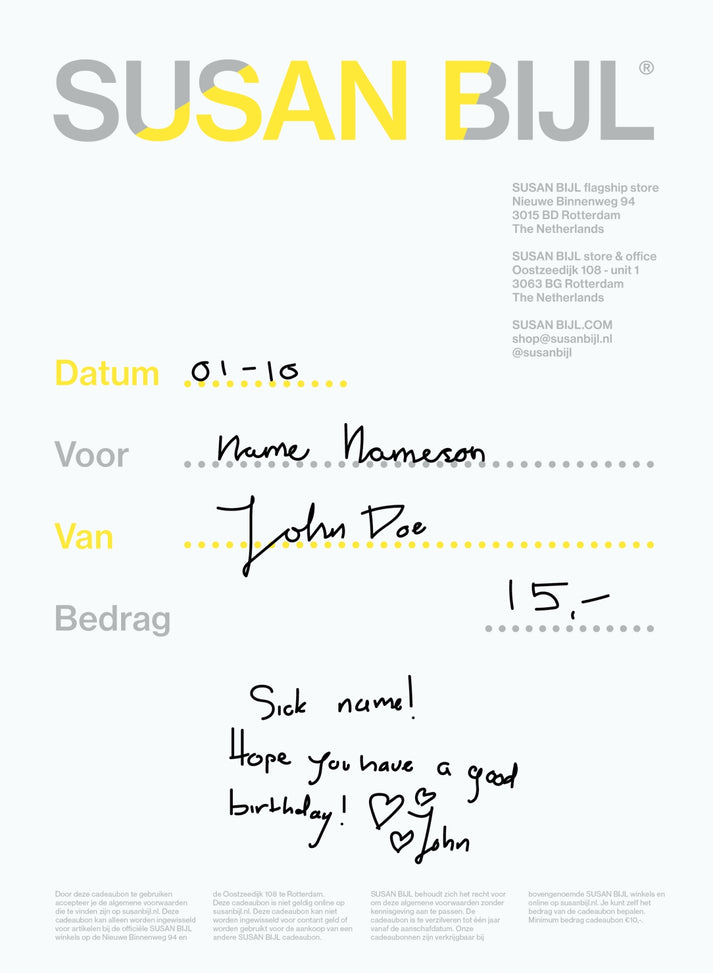 SUSAN BIJL®
SUSAN BIJL flagship store
Nieuwe Binnenweg 94
3015 BD Rotterdam
The Netherlands
SUSAN BIJL store & office
Oostzeedijk 108 - unit 1
3063 BG Rotterdam
The Netherlands
SUSAN BIJL.COM
shop@susanbijl.nl
@susanbijl
Datum 01-10
Voor Name Nameson
Van John Doe
Bedrag 15,-
Sick name!
Hope you have a good
birthday! ♡♡
♡John
Door deze cadeaubon te gebruiken
accepteer je de algemene voorwaarden
die te vinden zijn op susanbijl.nl. Deze
cadeaubon kan alleen worden ingewisseld
voor artikelen bij de officiële SUSAN BIJL
winkels op de Nieuwe Binnenweg 94 en
de Oostzeedijk 108 te Rotterdam.
Deze cadeaubon is niet geldig online op
susanbijl.nl. Deze cadeaubon kan niet
worden ingewisseld voor contant geld of
worden gebruikt voor de aankoop van een
andere SUSAN BIJL cadeaubon.
SUSAN BIJL behoudt zich het recht voor
om deze algemene voorwaarden zonder
kennisgeving aan te passen. De
cadeaubon is te verzilveren tot één jaar
vanaf de aanschafdatum. Onze
cadeaubonnen zijn verkrijgbaar bij
bovengenoemde SUSAN BIJL winkels en
online op susanbijl.nl. Je kunt zelf het
bedrag van de cadeaubon bepalen.
Minimum bedrag cadeaubon €10,-.